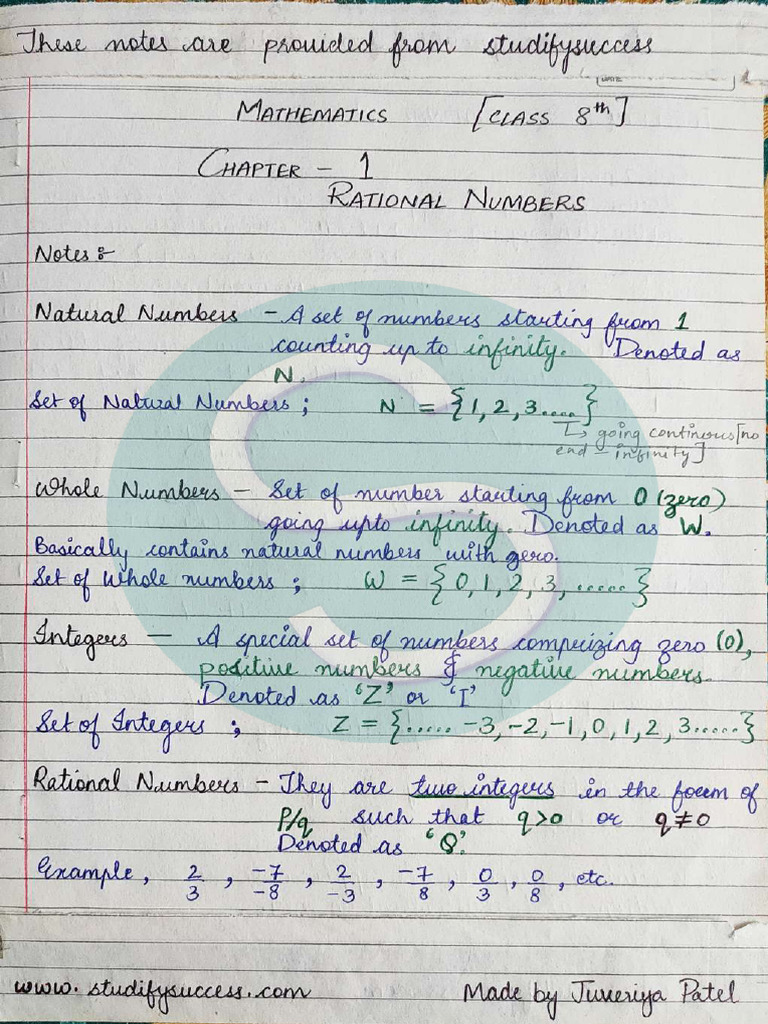 These notes are provided from studifysuccess
DATE
MATHEMATICS [CLASS 8th]
CHAPTER - 1
RATIONAL NUMBERS
Notes :-
Natural Numbers - A set of numbers starting from 1
counting up to infinity. Denoted as
N.
Set of Natural Numbers ; N = {1, 2, 3.....}
↳ going continous [no
end - infinity]
Whole Numbers - Set of number starting from 0 (zero)
going upto infinity. Denoted as W.
Basically contains natural numbers with zero.
Set of Whole numbers ; W = {0, 1, 2, 3, ......}
Integers - A special set of numbers comprizing zero (0),
positive numbers & negative numbers.
Denoted as 'Z' or 'I'
Set of Integers ; Z = {...... -3, -2, -1, 0, 1, 2, 3......}
Rational Numbers - They are two integers in the form of
P/q such that q>0 or q≠0
Denoted as 'Q'.
Example, 2/3, -7/-8, 2/-3, -7/8, 0/3, 0/8, etc.
www.studifysuccess.com Made by Juveriya Patel